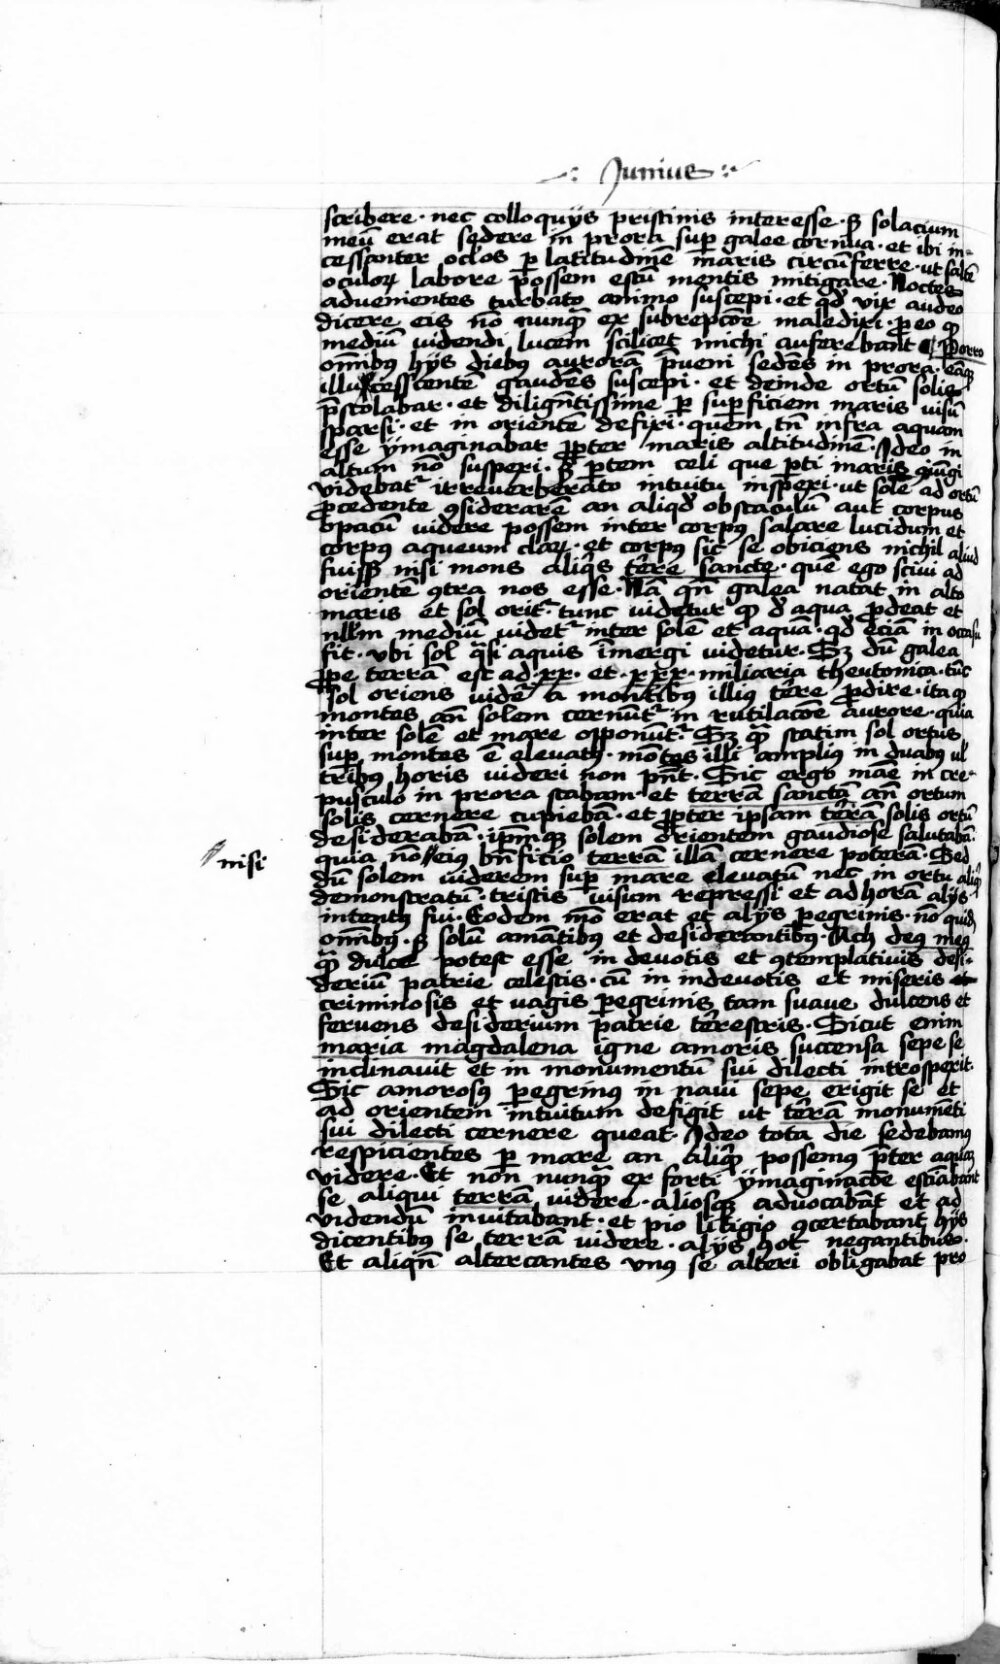 Junius
scribere · nec colloquijs pristinis interesse · sʒ solacium
meū erat sedere in prora suꝑ galee cornua · et ibi in-
cessanter oclos ꝑ latitudinē maris circūferre · ut saltē
oculoꝝ labore possem estū mentis mitigare · Noctes
advenientes turbato animo suscepi · et qđ vix audeo
dicere eis nō nunqͣ ex subrepcōe maledixi · ꝓ eo ꝙ
mediū videndi lucem scilicet michi auferebant ¶ Porro
omībus hijs diebus aurorā p̄veni sedēs in prora · eāqꝫ
illucesscentē gaudēs suscepi · et deinde ortū solis
p̄stolabar · et dilign̄tissime ꝑ suꝑficiem maris visū
sparsi · et in orientē defixi · quem tn̄ infra aquam
esse ymaginabar ꝓpter maris altitudinē · Ideo in
altum nō suspexi · sʒ ꝑtem celi que ꝑti maris ꝯiūgi
videbatʳ irreverberato intuitu inspexi · ut sole ad ortū
ꝓcedente ꝯsiderarē an aliqđ obstaculū aut corpus
opacū videre possem inter corpꝰ salare lucidum et
corpꝰ aqueum claꝝ · et corpꝰ sic se obiciens nichil aliud
fuissꝫ nisi mons aliqͥs terre sancte · quē ego scivi ad
orientē ꝯtra nos esse · Nā qn̄ galea natat in alto
maris et sol oritʳ tunc videtur ꝙ đ aqua ꝓdeat et
nllm mediū videtʳ inter solē et aquā · qđ eciā in occasu
fit · ubi sol qͣsi aquis īmergi videtur · Sʒ dū galea
ꝓpe terrā est ad · xx · et · xxx · miliaria theutonica · tūc
sol oriens vidēt a montibus illiꝰ terre ꝓdire · ita ꝙ
montes an̄ solem cernūtʳ in rutilacōe aurore · quia
inter solē et mare opponūtʳ · Sʒ qͣ statim sol ortus
suꝑ montes ē elevatꝰ · mōtes illi ampliꝰ in duabꝰ ul
tribꝰ horis videri non pn̄t · Sic ergo māe in cre-
pusculo in prora stabam · et terrā sanctā an̄ ortum
solis cernere cupiebā · et ꝓpter ipsam terrā solis ortū
desiderabā · ip̄mqꝫ solem orientem gaudiose salutabā ·
nisi
quia nō eiꝰ bn̄ficio terrā illā cernere poterā · Sed
dū solem viderem suꝑ mare elevatū nec in ortu aliqͥd
demonstratū · tristis visum repressi et ad horā alijs
intentꝰ fui · Eodem mō erat et alijs peregrinis · nō quidē
omībꝰ · sʒ solū amātibꝰ et desiderantibꝰ · Ach deꝰ meꝰ
qͣ dulce potest esse in devotis et ꝯtemplativis desi-
deriū patrie celestis · cū in indevotis et miseris
criminosis et vagis peregrinis tam suave dulcens et
fervens desiderium patrie terrestris · Sicut enim
maria magdalena igne amoris succensa sepe se
inclinavit et in monumentū sui dilecti introspexit ·
Sic amorosꝰ peregrinus in navi sepe erigit se et
ad orientem intuitum defigit ut terrā monumēti
sui dilecti cernere queat · Ideo tota die sedebamꝰ
respicientes ꝑ mare an aliqͥd possemꝰ p̄ter aquas
videre · Et non nunqͣ ex forti ymaginacōe estiābant
se aliqui terrā videre · aliosqꝫ advocabāt et ad
videndū invitabant · et pio litigio ꝯcertabant hijs
dicentibus se terrā videre · alijs hoc negantibus ·
Et aliqn̄ altercantes unꝰ se alteri obligabat pro